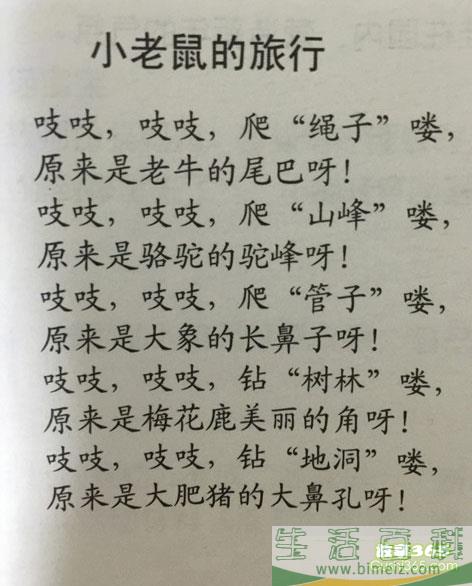 小老鼠的旅行
吱吱，吱吱，爬“绳子”喽，
原来是老牛的尾巴呀！
吱吱，吱吱，爬“山峰”喽，
原来是骆驼的驼峰呀！
吱吱，吱吱，爬“管子”喽，
原来是大象的长鼻子呀！
吱吱，吱吱，钻“树林”喽，
原来是梅花鹿美丽的角呀！
吱吱，吱吱，钻“地洞”喽，
原来是大肥猪的大鼻孔呀！
生活百科
www.bimeiz.com